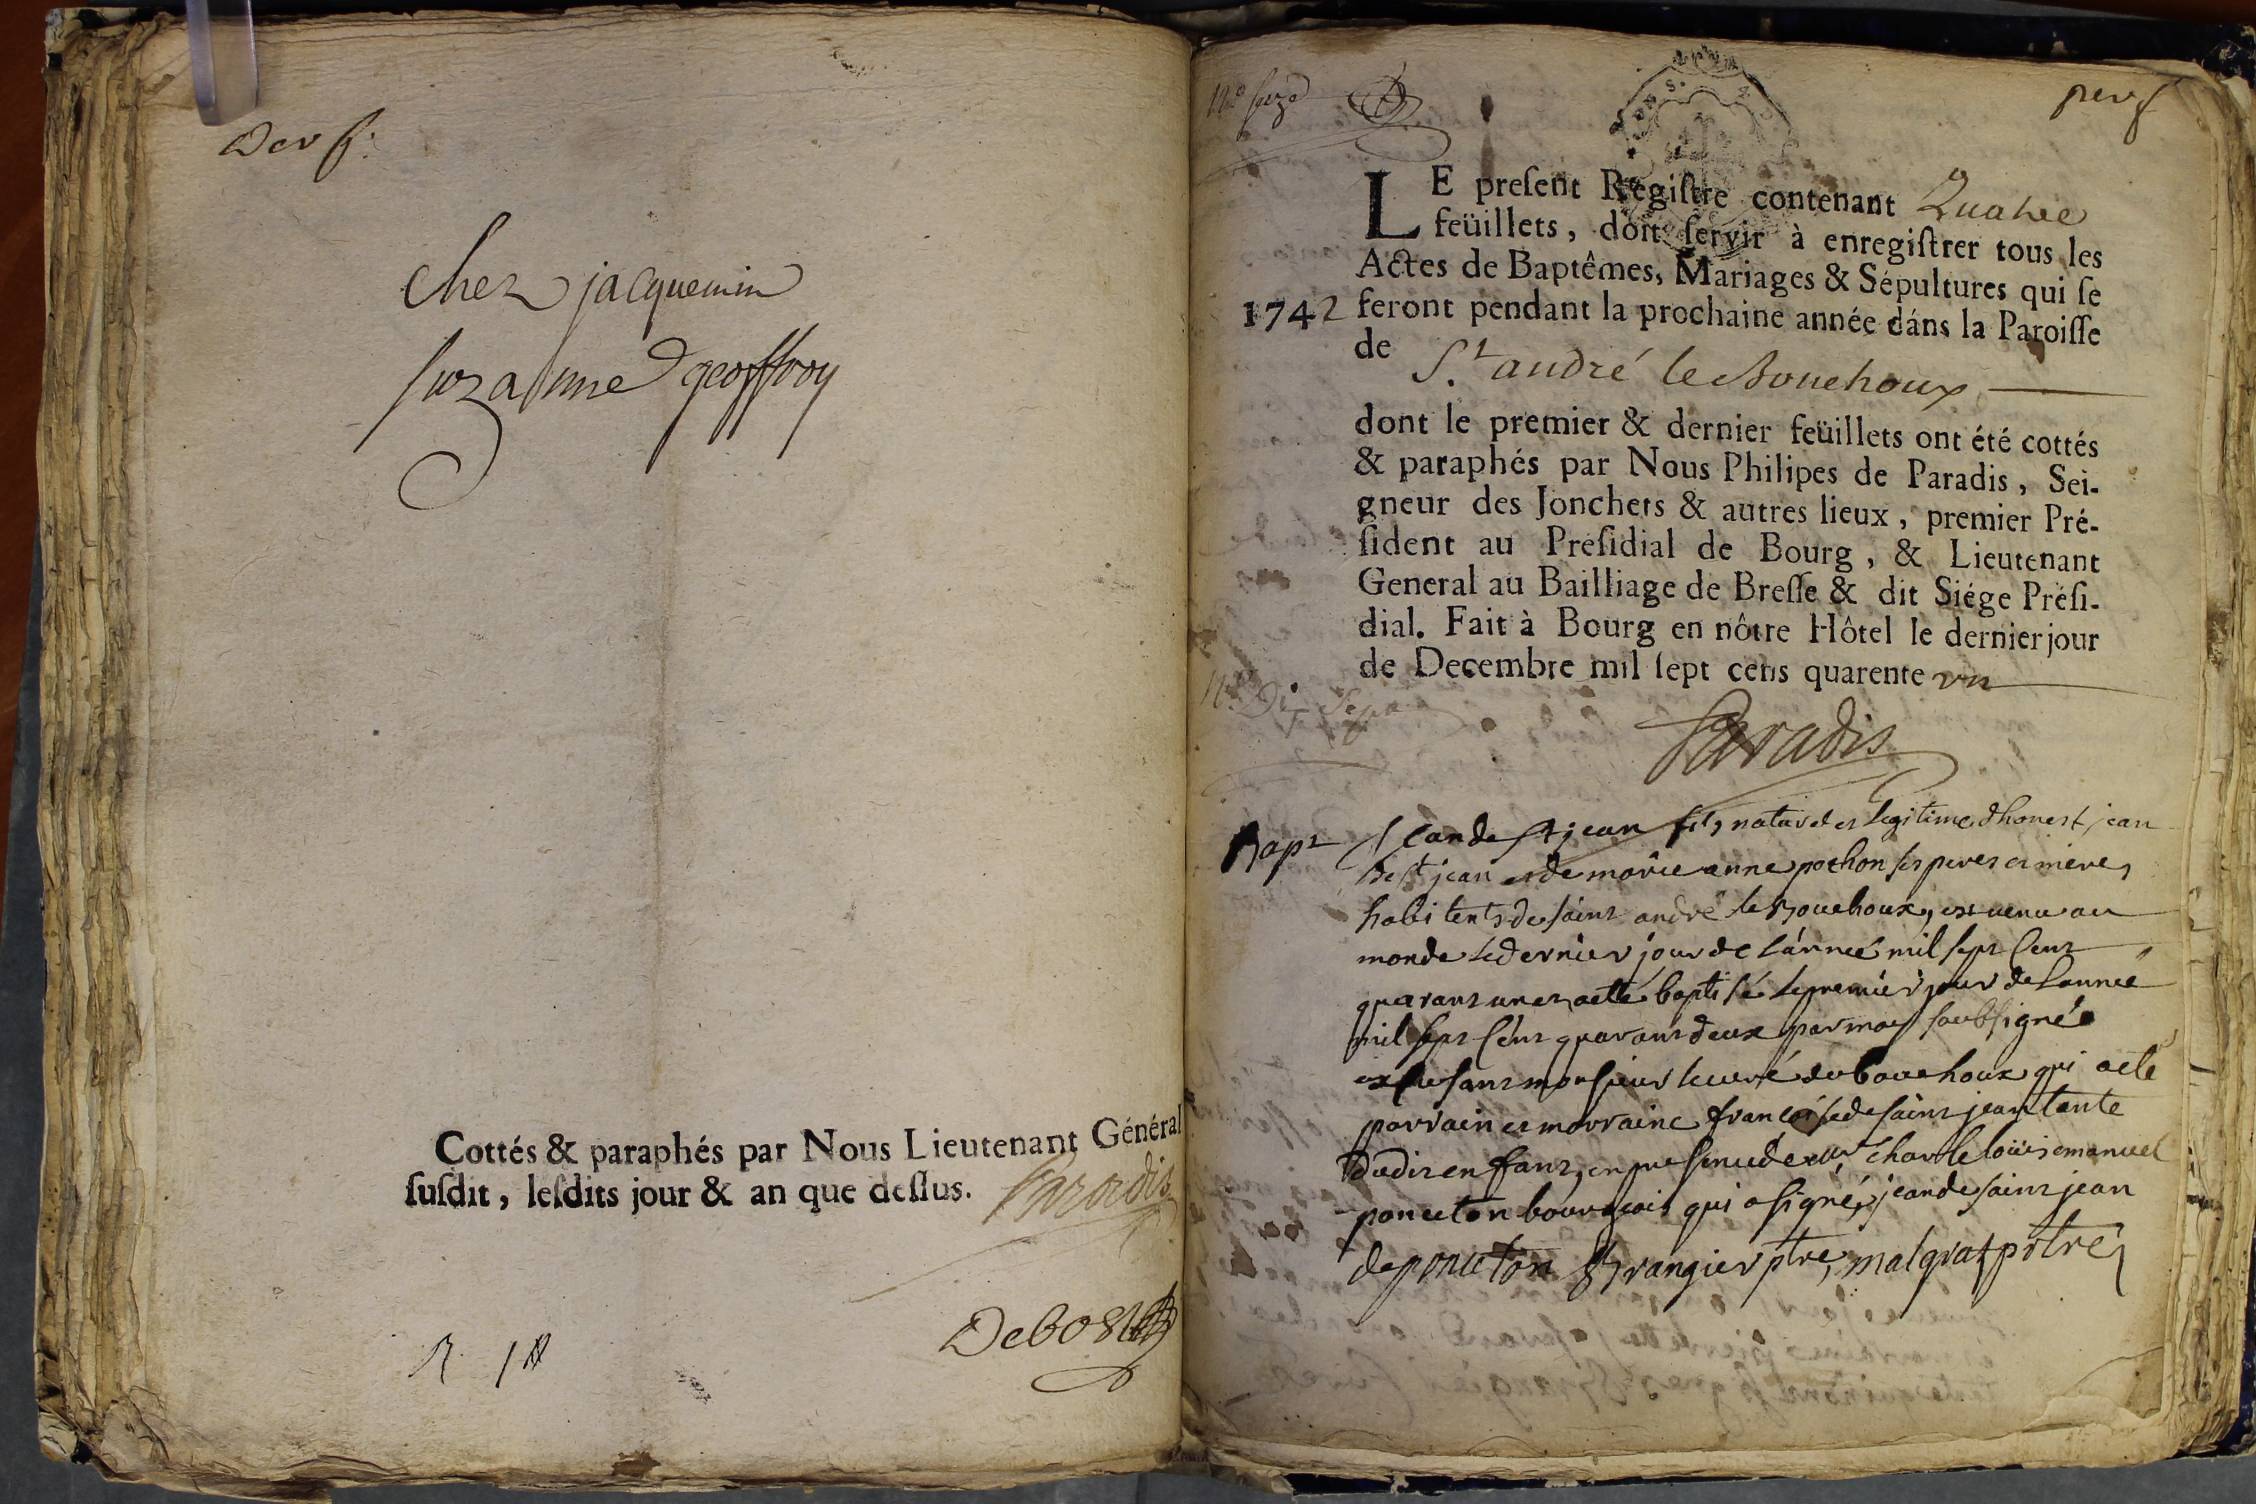 Der f.
chez jacquemin
suzanne geoffroy
Cottés & paraphés par Nous Lieutenant Général
susdit, lesdits jour & an que dessus. Paradis
Debost
R 1#
prer f
LE present Registre contenant Quatre
feüillets, doit servir à enregistrer tous les
Actes de Baptêmes, Mariages & Sépultures qui se
1742 feront pendant la prochaine année dáns la Paroisse
de St. andré le Bouchoux
dont le premier & dernier feüillets ont été cottés
& paraphés par Nous Philipes de Paradis, Sei-
gneur des Jonchets & autres lieux, premier Pré-
sident au Présidial de Bourg, & Lieutenant
General au Bailliage de Bresse & dit Siége Présí-
dial. Fait à Bourg en nôtre Hôtel le dernier jour
de Decembre mil sept cens quarente un
Paradis
Bapt Jean de st jean fils naturel et legitime d'honest jean
de st jean et de marie anne pochon ses peres et meres
habitents de saint andré le Bouchoux, est venu au
monde le dernier jour de l'année mil sept cent
quarant un et a eté baptisé le premier jour de l'année
mil sept cent quarant deux par moy soubsigné
en presence monsieur le curé du bouchoux qui a eté
parrain et marraine françoise de saint jean tante
dudit enfant, en presence de charle loüis emanuel
ponceton bourgeois qui a signé, jean de saint jean
de ponceton Brangier ptre, malgraz pbtre